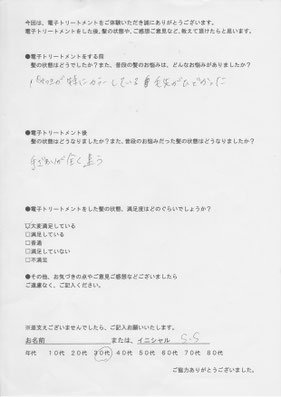 今回は、電子トリートメントをご体験いただき誠にありがとうございます。
電子トリートメントをした後、髪の状態や、ご感想ご意見など、教えて頂けたらと思います。
●電子トリートメントをする前
髪の状態はどうでしたか？また、普段の髪のお悩みは、どんなお悩みがありましたか？
特にカラーしている 毛先がひどかった
●電子トリートメント後
髪の状態はどうなりましたか？また、普段のお悩みだった髪の状態はどうなりましたか？
手ざわりが全く違う
●電子トリートメントをした髪の状態、満足度はどのぐらいでしょうか？
☑大変満足している
□満足している
□普通
□満足していない
□不満足
●その他、お気づきの点やご意見ご感想などございましたら
ご遠慮なく、ご記入ください。
※差支えございませんでしたら、ご記入お願いいたします。
お名前 または、イニシャル S-S
年代 10代 20代 30代 40代 50代 60代 70代 80代
ご協力ありがとうございました。